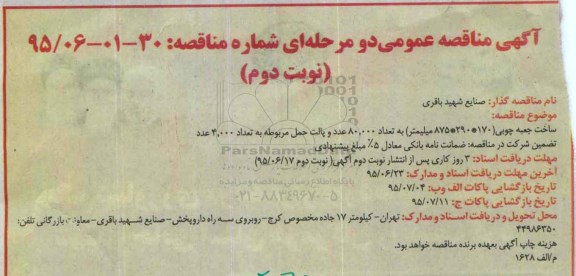 آگهی مناقصه عمومی دو مرحله‌ای شماره مناقصه: ۳۰-۰۱-۹۵/۰۶
(نوبت دوم)
نام مناقصه گذار: صنایع شهید باقری
موضوع مناقصه:
ساخت جعبه چوبی(۱۷۰*۲۹۰*۸۷۵ میلیمتر) به تعداد ۸۰,۰۰۰ عدد و پالت حمل مربوطه به تعداد ۴,۰۰۰ عدد
تضمین شرکت در مناقصه: ضمانت نامه بانکی معادل ۵٪ مبلغ پیشنهادی
مهلت دریافت اسناد: ۳ روز کاری پس از انتشار نوبت دوم آگهی( نوبت دوم ۹۵/۰۶/۱۷)
آخرین مهلت دریافت اسناد و مدارک: ۹۵/۰۶/۲۳
تاریخ بازگشایی پاکات الف وب: ۹۵/۰۷/۰۴
تاریخ بازگشایی پاکات ج: ۹۵/۰۷/۱۱
محل تحویل و دریافت اسناد و مدارک: تهران-کیلومتر ۱۷ جاده مخصوص کرج-روبروی سه راه داروپخش-صنایع شهید باقری-معاونت بازرگانی تلفن:
۴۴۹۸۶۳۵۰
هزینه چاپ آگهی بعهده برنده مناقصه خواهد بود.
م/الف ۱۶۲۸
ParsNamadData
پایگاه اطلاع رسانی مناقصه و مزایده
۰۲۱-۸۸۳۴۹۶۷۰-۵